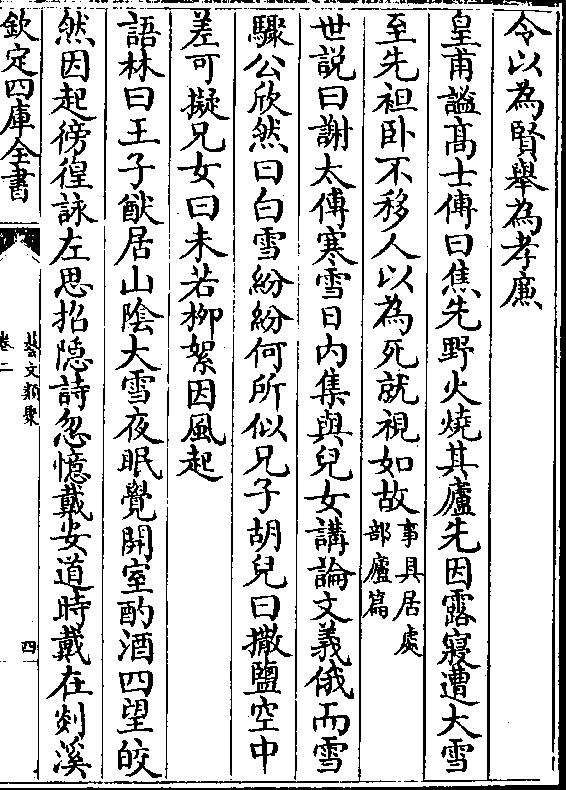 令以為賢舉為孝廉
皇甫謐髙士傳曰焦先野火燒其廬先因露寢遭大雪
至先袒卧不移人以為死就視如故事具居處部廬篇
世説曰謝太傅寒雪日内集與兒女講論文義俄而雪
驟公欣然曰白雪紛紛何所似兄子胡兒曰撒鹽空中
差可擬兄女曰未若栁絮因風起
語林曰王子猷居山陰大雪夜眠覺開室酌酒四望皎
然因起徬徨詠左思招隠詩忽憶戴安道時戴在剡溪
欽定四庫全書
藝文類聚
卷二
四